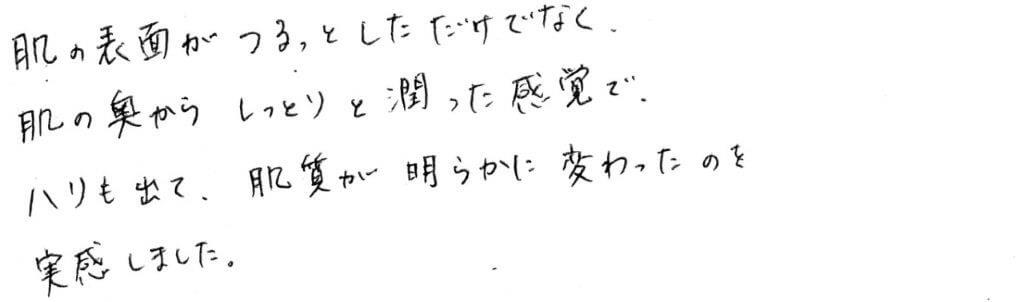 肌の表面がつるっとしただけでなく、
肌の奥からしっとりと潤った感覚で、
ハリも出て、肌質が明らかに変わったのを
実感しました。